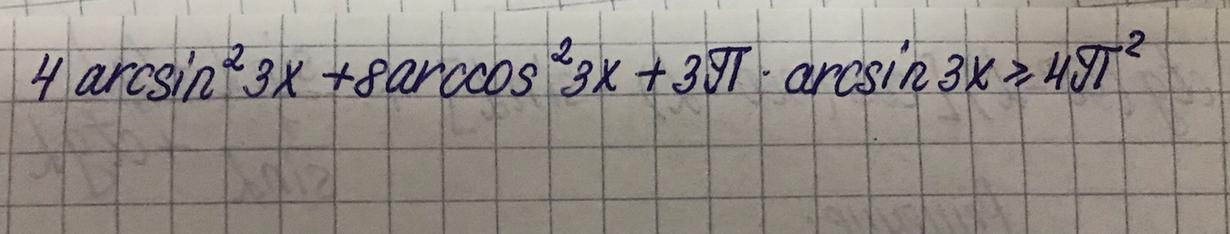 4 arcsin²3x + 8arccos²3x + 3π · arcsin 3x ≥ 4π²